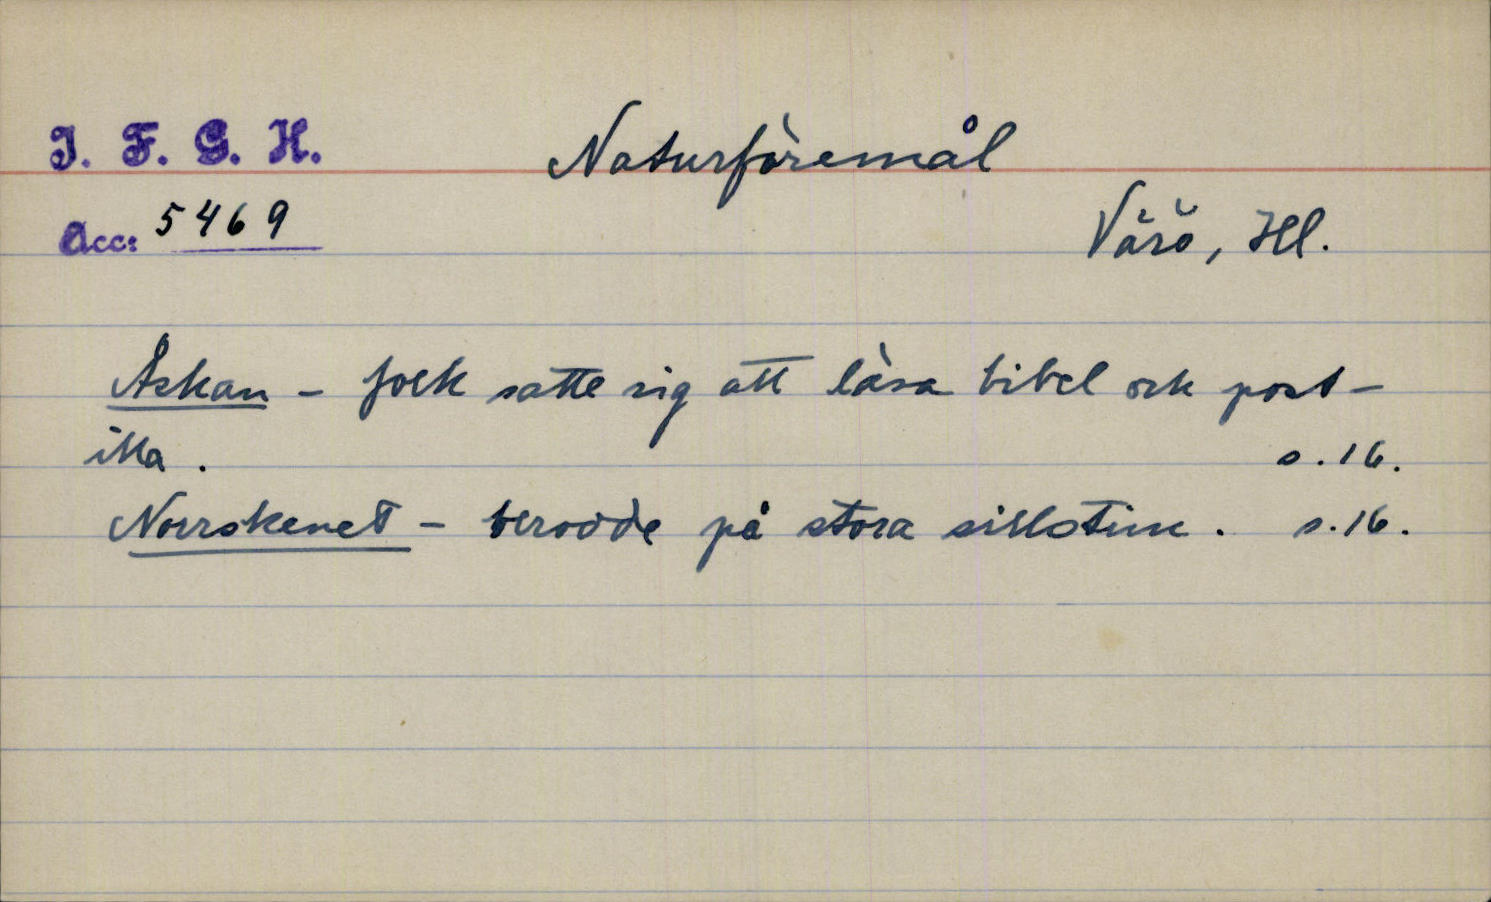 I. F. G. H.
Naturföremål
Acc: 5469
Värö, Hl.
Åskan – folk satte sig att läsa bibel och post-
illa. s. 16.
Norrskenet – berodde på stora sillstim. s. 16.